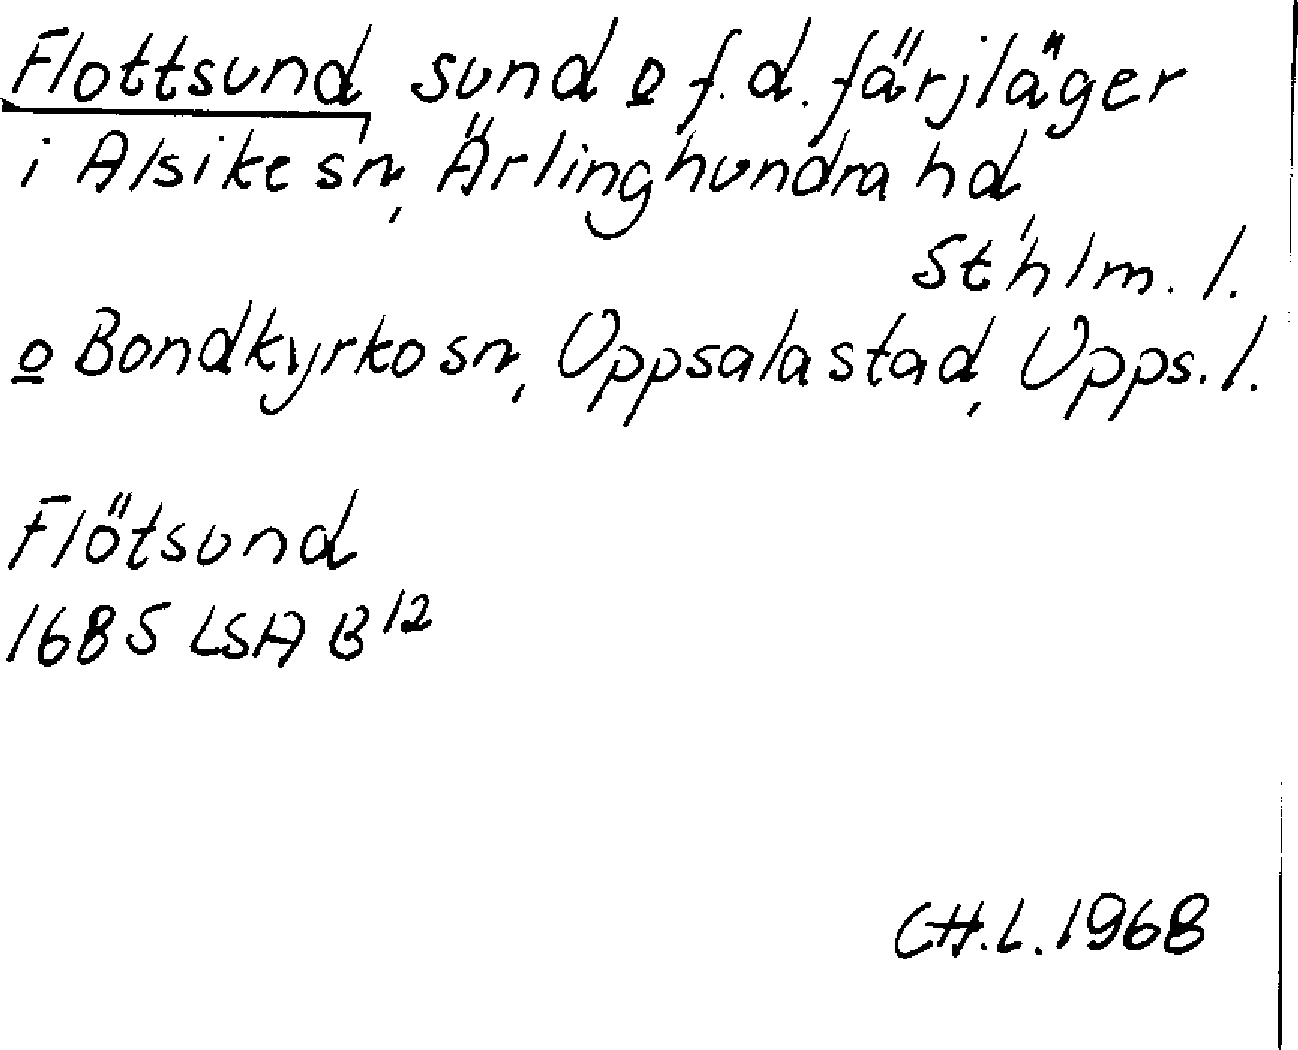 Flottsund sund o f.d. färjläger
i Alsike sn, Ärlinghundra hd,
Sthlm. l.
o Bondkyrko sn, Uppsala stad, Upps. l.
Flötsund
1685 LSA B12
CH.L. 1968